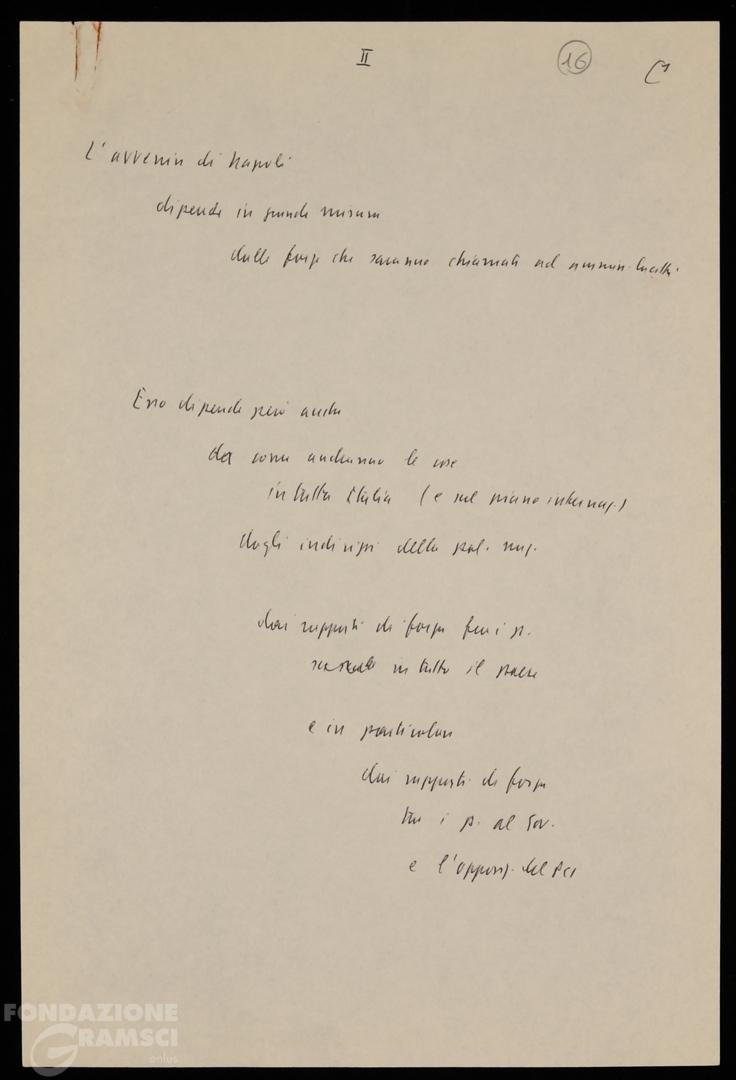 II
16
L'avvenire di Napoli
dipende in grande misura
dalle forze che saranno chiamate ad ammin.
Esso dipende però anche
da come andranno le cose
in tutta Italia (e sul piano internaz.)
dagli indirizzi della pol. naz.
dai rapporti di forza fra i p.
in tutto il paese
e in particolare
dai rapporti di forza
tra i p. al Gov.
e l'opposiz. del PCI
FONDAZIONE
GRAMSCI
onlus